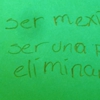 ser mexi
ser una p
eliminar